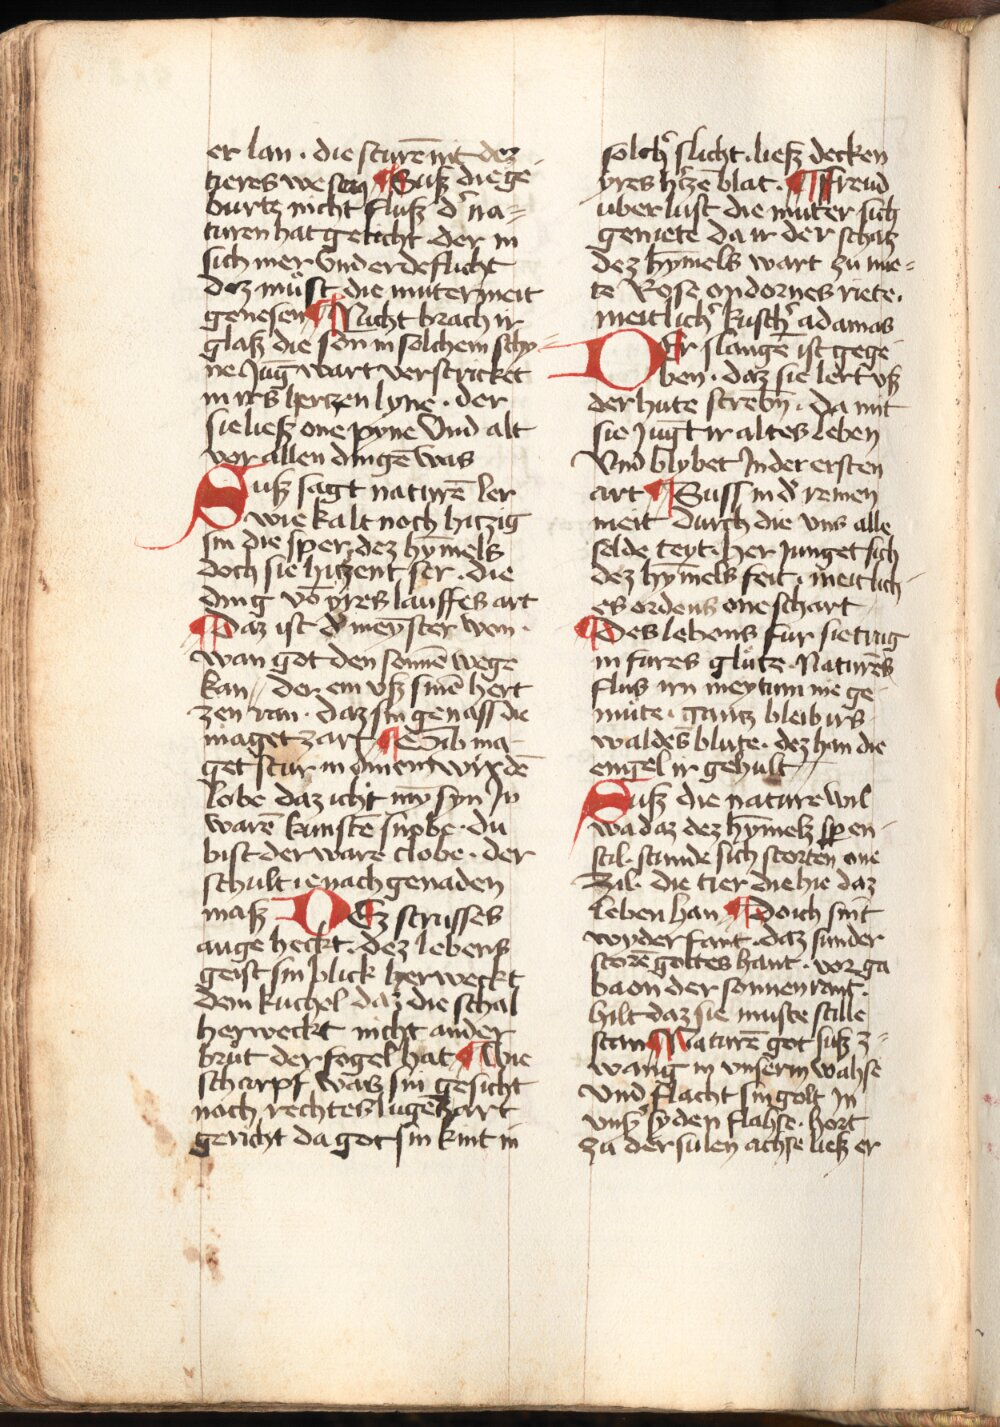 er lan · die sturē nit dez
tieres wesen ¶ Suß die ge
burtz nicht fluß d' na=
turen hat geticht der in
sich mer Vnd erde flicht
dez müst die muter meit
genesen ¶ Nicht brach ir
glaß die son in solchem schy=
ne Jūg wart verstricket
in irs hertzen lyne · der
sie ließ one pyne Vnd alt
vor allen dingē was
Suß sagt naturē ler
wie kalt noch hitzig
sin die sper dez hymels
doch sie hitzent ser · die
ding vō yres lauffes art
¶ Daz ist d' meyster won ·
wan got den sonnē wege
kan // der em vß sinē hert
zen ran · daz sin genass die
maget zart ¶ Gib ma-
get stur in dinem wirdē
lobe daz icht mȳ syn Jn
warē kunstē snobe · du
bist der ware clobe · der
schult ie nach genaden
maß DEz strusses
auge heckt · dez lebens
geist sin blick herweckt
dem kuchel daz die schal
herweckt nicht ander
brut der fogel hat ¶ Wie
scharpf was sin gesicht
noch rechtes lugēs art
gericht da got sin kint in
solch' slicht · ließ decken
yres h'zē blat · ¶ Freud
uber lust die muter sich
geniete da ir der schatz
dez hymels wart zu mie=
te Rose on dornes riete ·
meitlich' kusch' adamas
DEr slangē ist gege
ben · daz sie lert vß
der hute strebn̄ · da mit
sie Jugt ir altes leben
Vnd blybet Jn der ersten
art ¶ Suss in d' reinen
meit durch die vns alle
selde teyt · her Junget sich
dez hymels feit · meitlich
es ordens one schart
¶ Des lebens fur sie trug
in fures glüte · Naturēs
flus irn meytum nie ge
müte · gantz bleib irs
waldes blute · dez han die
engel ir gehult
Suß die nature wil
wa daz dez hymels sper en-
stil · stunde sich storten one
Zil · die tier die hie daz
leben han ¶ Doich sint
wyder fant · daz sunder
storē gottes hant · vor ga
baon der sonnen rant ·
hilt daz sie muste stille
stan ¶ Naturē got suß z=
wang in vnserm wahse
Vnd flacht sin golt Jn
vnß' syden flahse · hort
zu der sulen achse ließ er